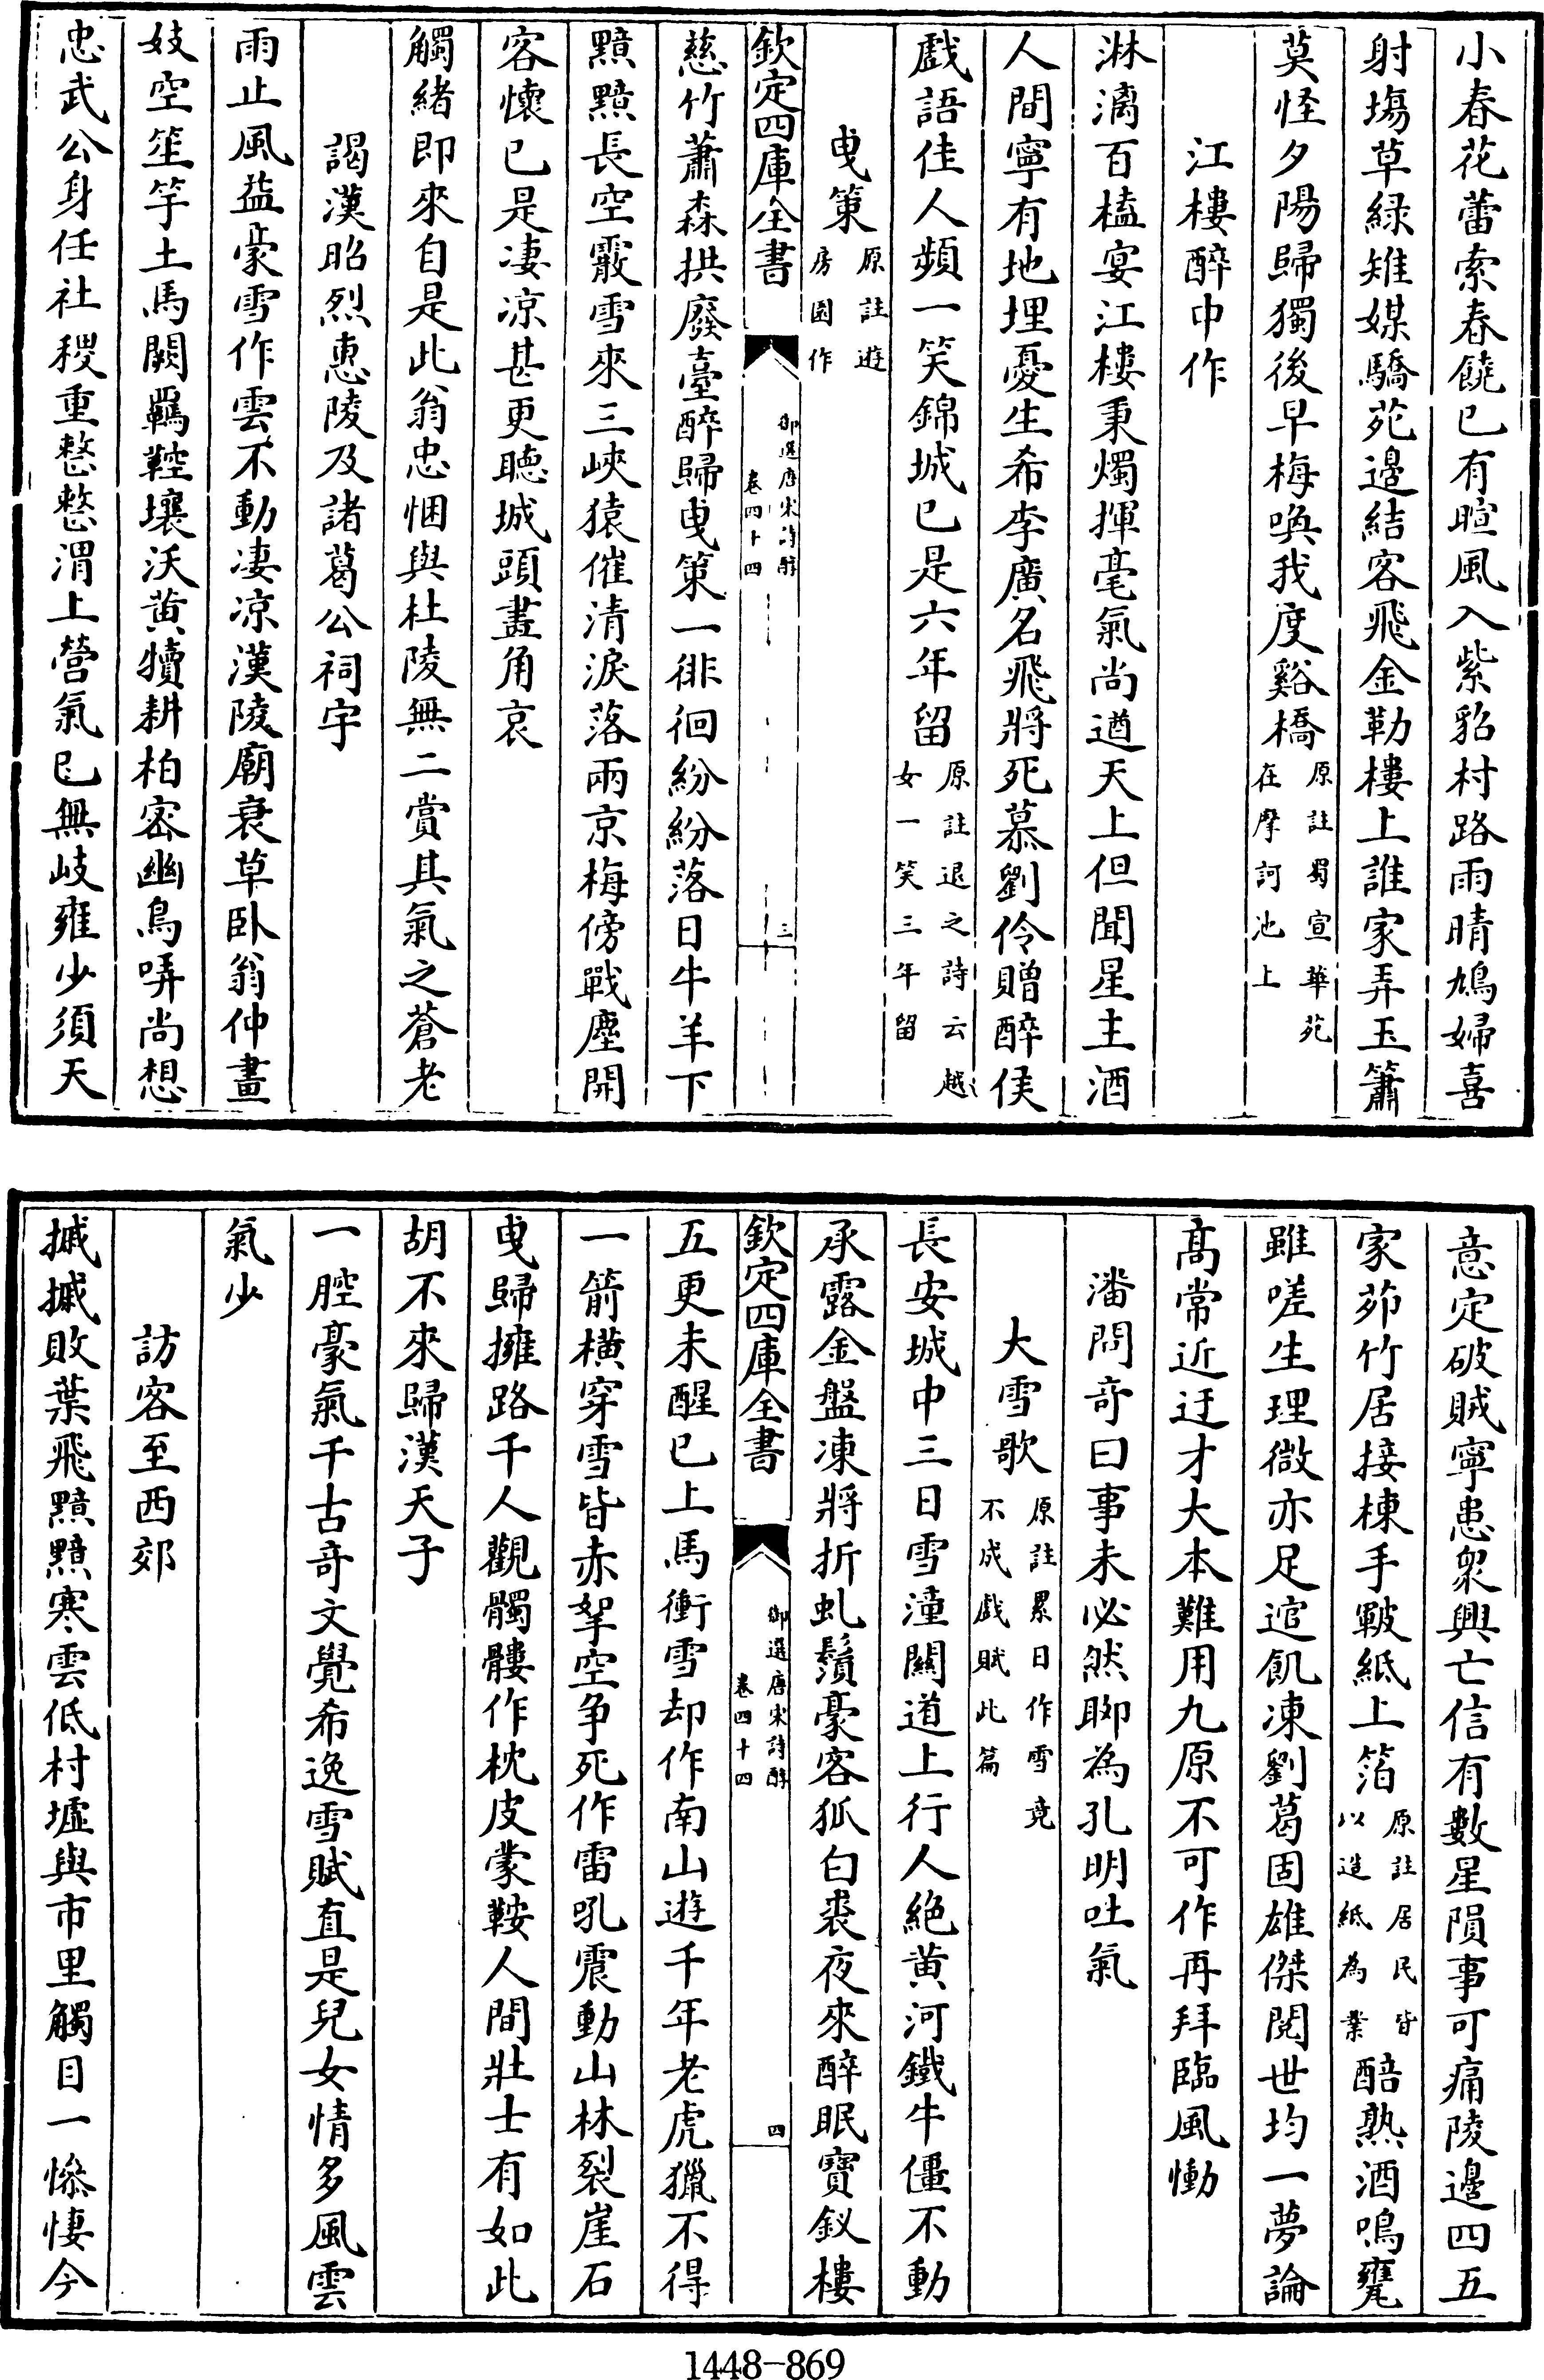 小春花蕾索春饒已有暄風入紫貂村路雨晴鳩婦喜
射塲草緑雉媒驕苑邊結客飛金勒樓上誰家弄玉簫
莫怪夕陽歸獨後早梅喚我度谿橋原註蜀宣華苑在摩訶池上
江樓醉中作
淋漓百榼宴江樓秉燭揮毫氣尚遒天上但聞星主酒
人間寧有地埋憂生希李廣名飛將死慕劉伶贈醉侯
戲語佳人頻一笑錦城已是六年留原註退之詩云越女一笑三年留
曳策原註遊房園作
欽定四庫全書
御選唐宋詩醇
卷四十四
三
慈竹蕭森拱廢臺醉歸曳策一徘徊紛紛落日牛羊下
黯黯長空霰雪來三峽猿催清淚落兩京梅傍戰塵開
客懷已是凄凉甚更聴城頭畫角哀
觸緒即來自是此翁忠悃與杜陵無二賞其氣之蒼老
謁漢昭烈惠陵及諸葛公祠宇
雨止風益豪雪作雲不動凄凉漢陵廟衰草卧翁仲畫
妓空笙竽土馬闕羈鞚壤沃黄犢耕柏密幽鳥哢尚想
忠武公身任社稷重整整渭上營氣已無岐雍少須天
意定破賊寧患衆興亡信有數星隕事可痛陵邊四五
家茆竹居接棟手皸紙上箔原註居民皆以造紙為業醅熟酒鳴甕
雖嗟生理微亦足逭飢凍劉葛固雄傑閲世均一夢論
髙常近迂才大本難用九原不可作再拜臨風慟
潘問竒曰事未必然聊為孔明吐氣
大雪歌原註累日作雪竟不成戲賦此篇
長安城中三日雪潼關道上行人絶黄河鐵牛僵不動
承露金盤凍將折虬鬚豪客狐白裘夜來醉眠寶釵樓
欽定四庫全書
御選唐宋詩醇
卷四十四
四
五更未醒已上馬衝雪却作南山遊千年老虎獵不得
一箭横穿雪皆赤拏空争死作雷吼震動山林裂崖石
曳歸擁路千人觀髑髏作枕皮蒙鞍人間壯士有如此
胡不來歸漢天子
一腔豪氣千古竒文覺希逸雪賦直是兒女情多風雲
氣少
訪客至西郊
摵摵敗葉飛黯黯寒雲低村墟與市里觸目一慘悽今
1448-869